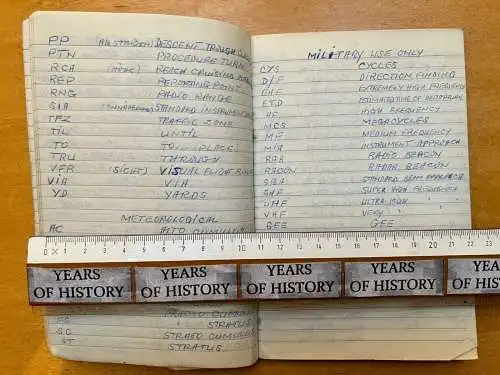 PP DESCENT TROUGH
PTN PROCEDURE TURN
RCH REACH CRUISING
REP REPORTING POINT
RNG RADIO RANGE
SIA STANDARD INSTRUMENT
TFZ TRAFFIC ZONE
TIL UNTIL
TO TO (PLACE)
TRU THROUGH
VFR (SICHT) VISUAL FLIGHT RULES
VIA VIA
YD YARDS
METEOROLOGICAL
AC ALTO CUMULUS
STRATUS
SC STRATO CUMULUS
ST STRATUS
MILITARY USE ONLY
CYS CYCLES
D/F DIRECTION FINDING
EHF EXTREMELY HIGH FREQUENCY
ETD ESTIMATED TIME OF DEPARTURE
HF HIGH FREQUENCY
MCS MEGACYCLES
MF MEDIUM FREQUENCY
MIA INSTRUMENT APPROACH
RAB RADIO BEACON
RACON RADAR BEACON
SBA STANDARD BEAM APPROACH
SHF SUPER HIGH FREQUENCY
UHF ULTRA HIGH "
VHF VERY " "
GEE GEE
0 1 2 3 4 5 6 7 8 9 10 11 12 13 14 15 16 17 18 19 20 21 22 23
YEARS OF HISTORY YEARS OF HISTORY YEARS OF HISTORY YEARS OF HISTORY YEARS OF HISTORY